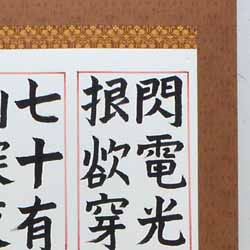 閃電光
欲穿
七十有